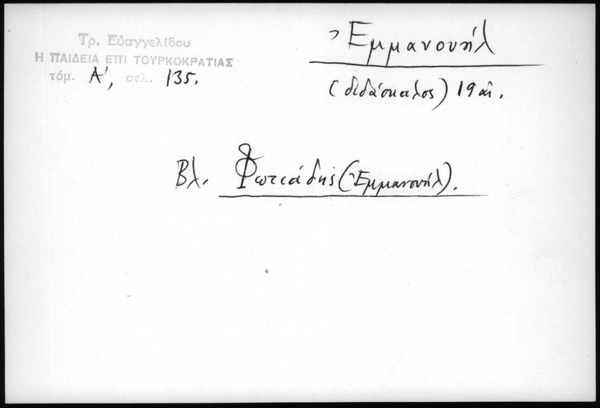 Τρ. Εὐαγγελίδου
Η ΠΑΙΔΕΙΑ ΕΠΙ ΤΟΥΡΚΟΚΡΑΤΙΑΣ
τόμ. Α', σελ. 135.
Ἐμμανουήλ
(διδάσκαλος) 19 αἰ.
Βλ. Φωτιάδης (Ἐμμανουήλ).